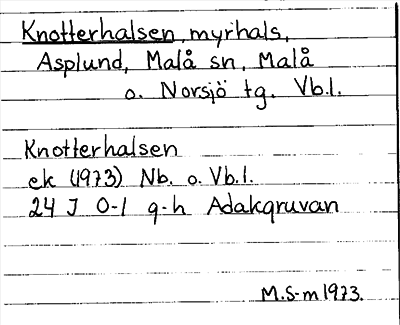 Knotterhalsen, myrhals,
Asplund, Malå sn, Malå
o. Norsjö tg. Vb.l.
Knotterhalsen
ek (1973) Nb. o. Vb.l.
24 J 0-1 g-h Adakgruvan
M.S-m 1973.